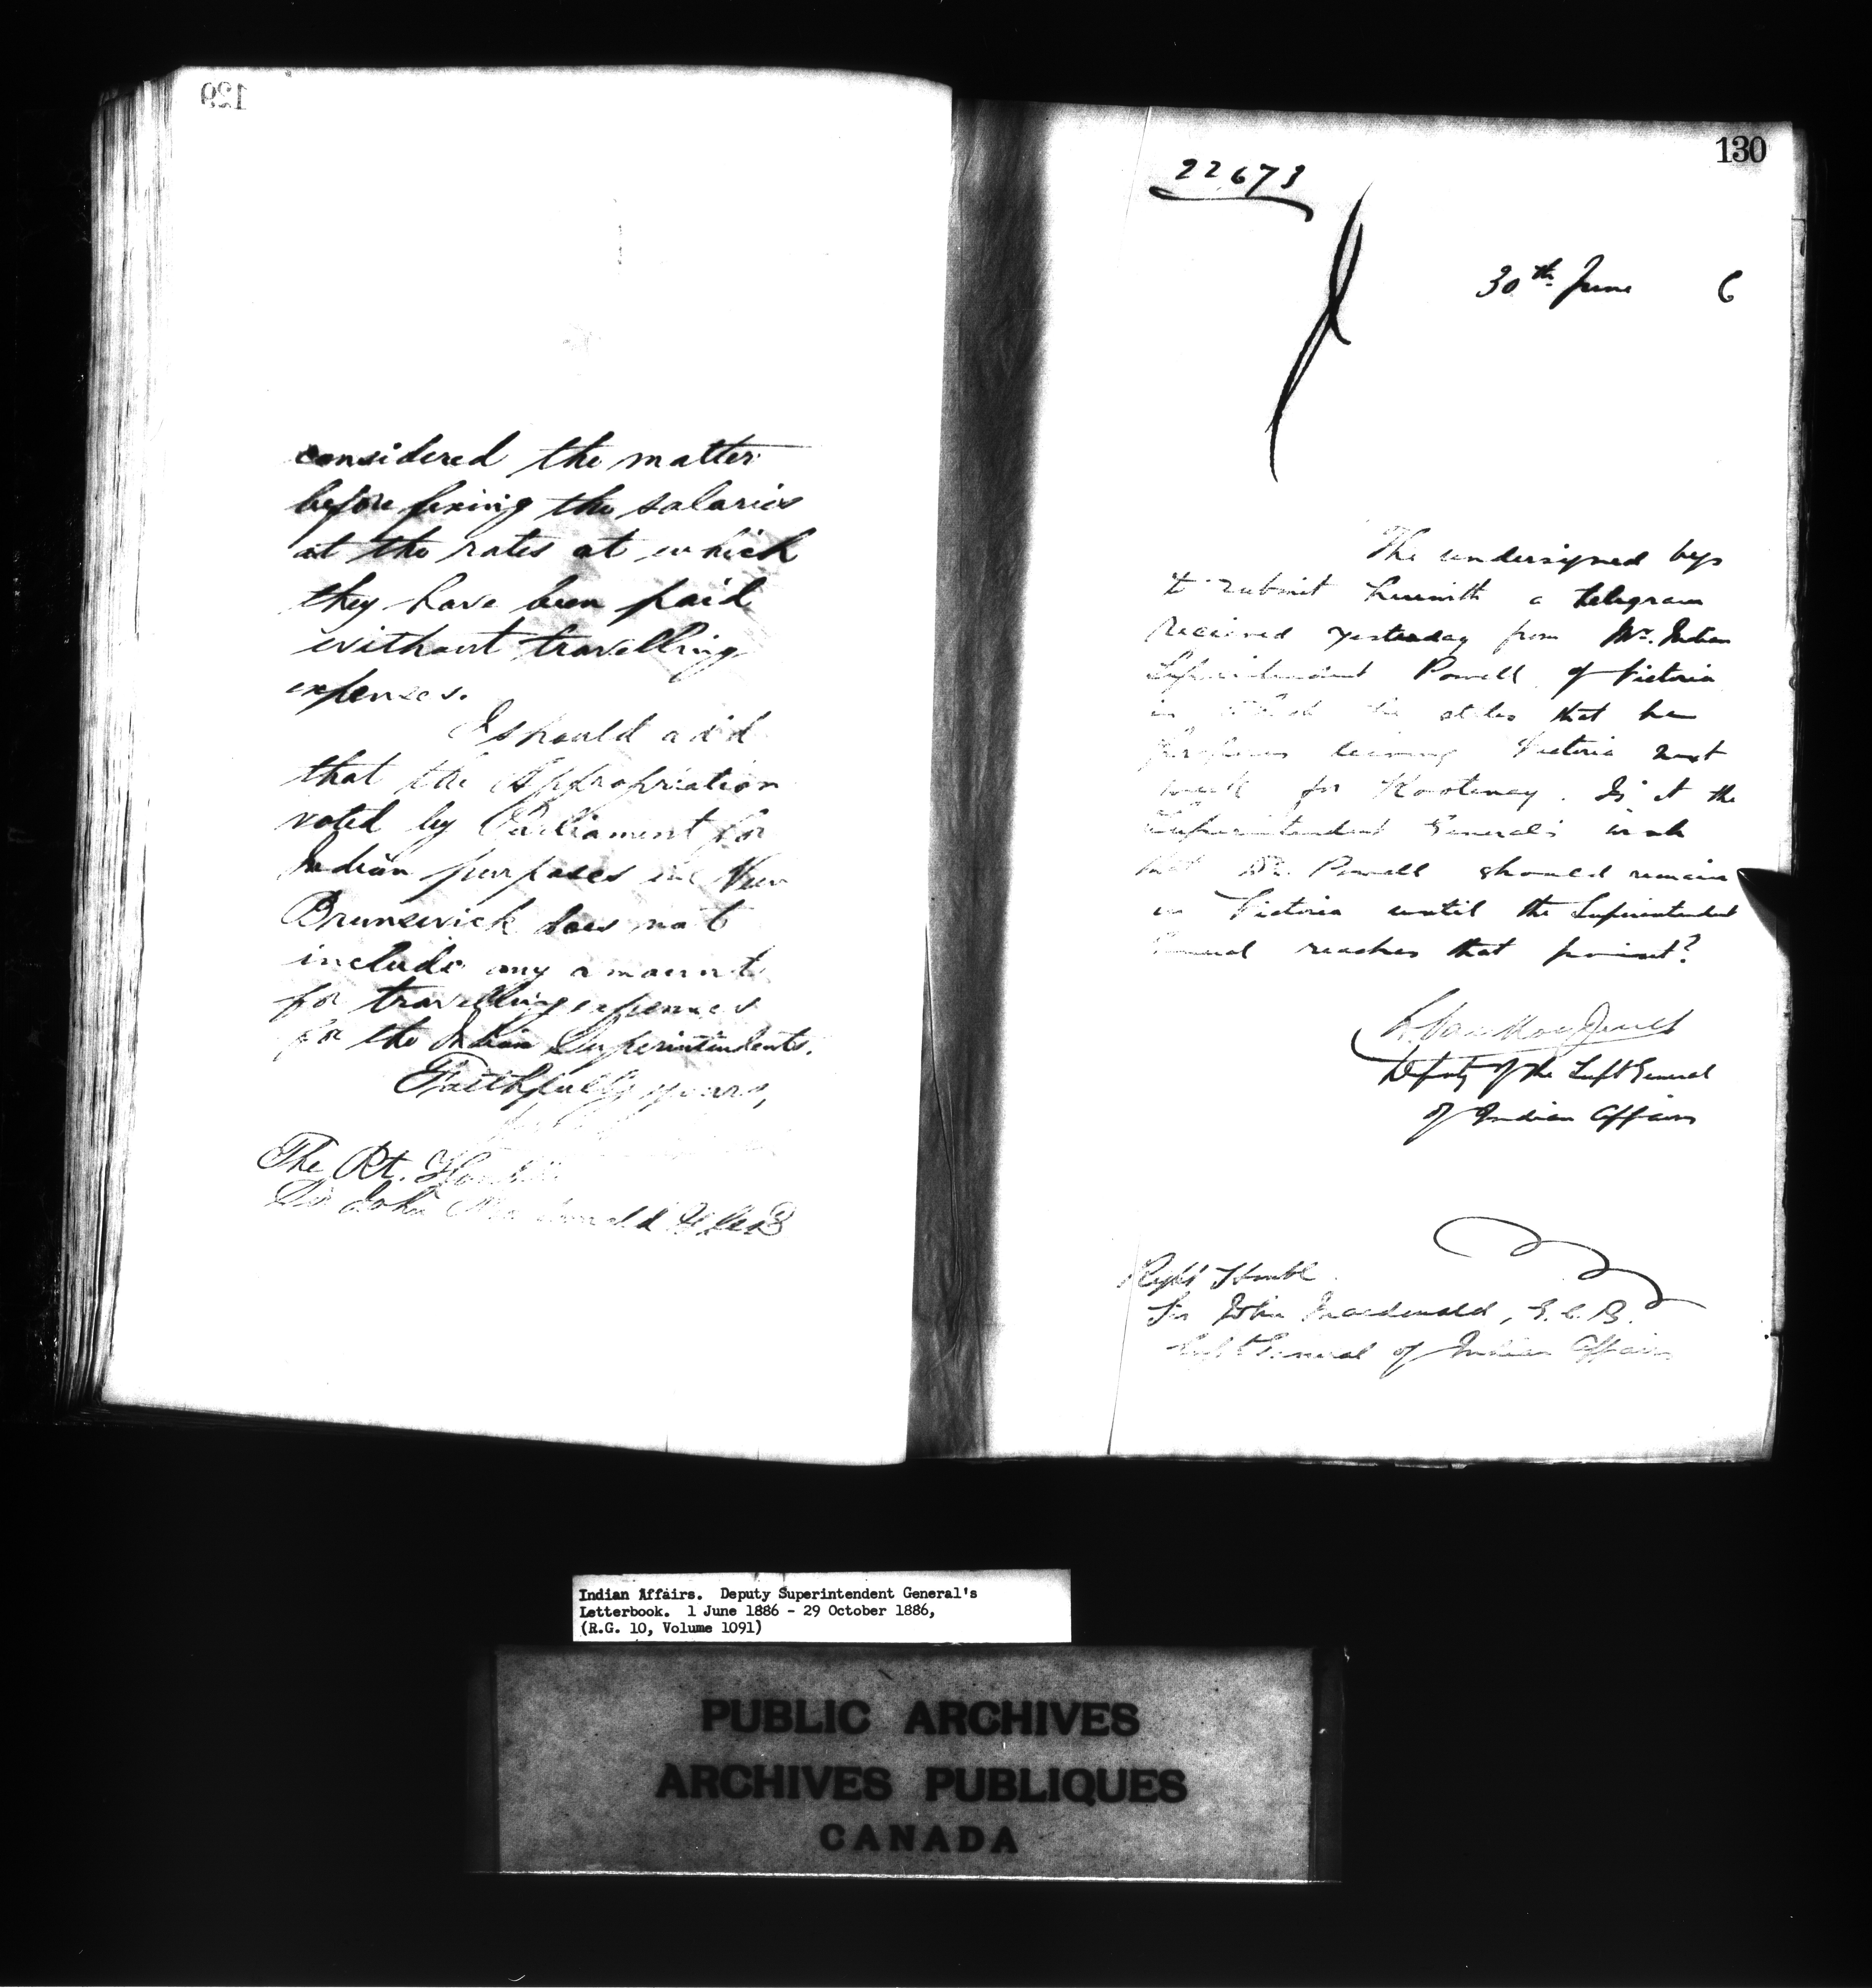 129
considered the matter
before fixing the salaries
at the rates at which
they have been paid
without travelling
expenses.
I should add
that the Appropriation
voted by Parliament for
Indian purposes in New
Brunswick does not
include any amount
for travelling expenses
for the Indian Superintendents.
Faithfully yours,
The Rt. Honble
Sir John Macdonald G.C.B
130
22673
30th June 6
The undersigned begs
to submit herewith a telegram
received yesterday from Mr. Indian
Superintendent Powell of Victoria
in which he states that he
proposes leaving Victoria next
week for Kootenay. Is it the
Superintendent General's wish
that Dr. Powell should remain
in Victoria until the Superintendent
General reaches that point?
L. Vankoughnet
Deputy of the Supt General
of Indian Affairs
Right Honble
Sir John Macdonald, G.C.B.
Supt General of Indian Affairs
Indian Affairs. Deputy Superintendent General's
Letterbook. 1 June 1886 - 29 October 1886,
(R.G. 10, Volume 1091)
PUBLIC ARCHIVES
ARCHIVES PUBLIQUES
CANADA